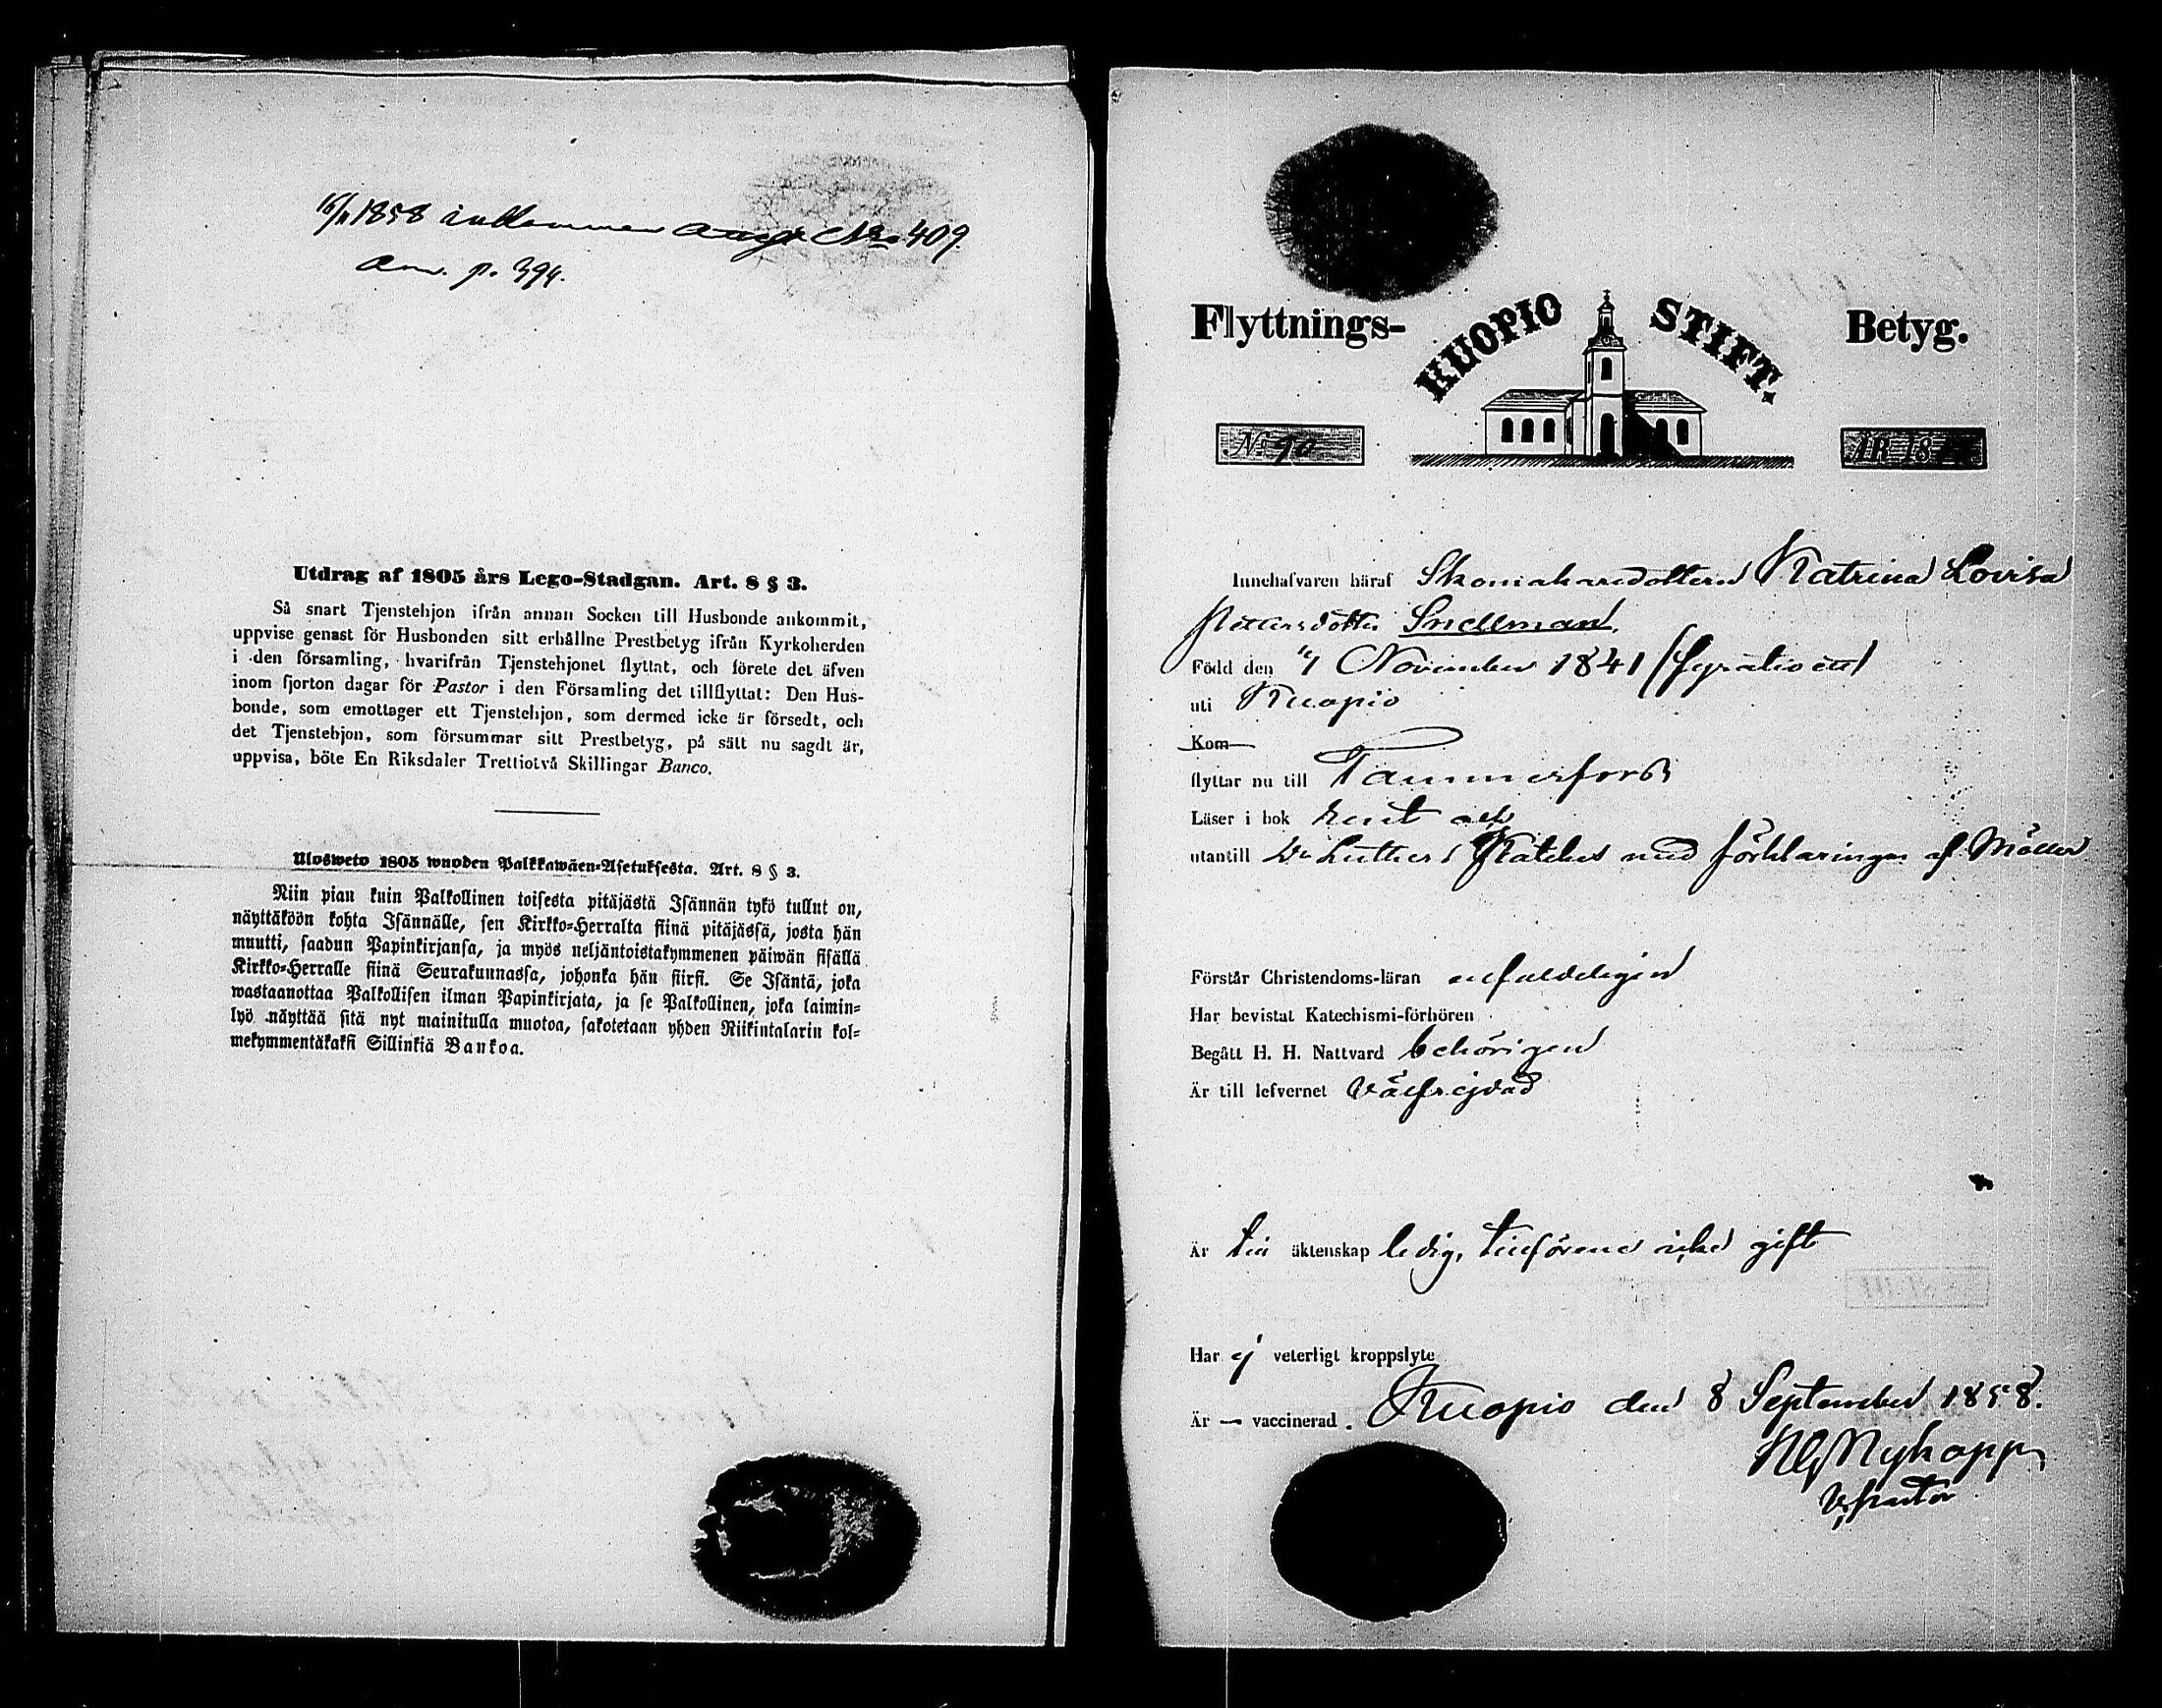 1858 inkommen Nro 409.
Anv. p. 394.
Utdrag af 1805 års Lego-Stadgan. Art. 8 § 3.
Så snart Tjenstehjon ifrån annan Socken till Husbonde ankommit,
uppvise genast för Husbonden sitt erhållne Prestbetyg ifrån Kyrkoherden
i den församling, hvarifrån Tjenstehjonet flyttat, och förete det äfven
inom fjorton dagar för Pastor i den Församling det tillflyttat: Den Hus-
bonde, som emottager ett Tjenstehjon, som dermed icke är försedt, och
det Tjenstehjon, som försummar sitt Prestbetyg, på sätt nu sagdt är,
uppvisa, böte En Riksdaler Trettiotvå Skillingar Banco.
Ulosweto 1805 wuoden Palkkawäen-Asetuksesta. Art. 8 § 3.
Niin pian kuin Palkollinen toisesta pitäjästä Isännän tykö tullut on,
näyttäköön kohta Isännälle, sen Kirkko-Herralta siinä pitäjässä, josta hän
muutti, saadun Papinkirjansa, ja myös neljäntoistakymmenen päiwän sisällä
Kirkko-Herralle siinä Seurakunnassa, johonka hän siirsi. Se Isäntä, joka
wastaanottaa Palkollisen ilman Papinkirjata, ja se Palkollinen, joka laimin-
lyö näyttää sitä nyt mainitulla muotoa, sakotetaan yhden Riikintalarin kol-
mekymmentäkaksi Sillinkiä Bankoa.
Flyttnings- KUOPIO STIFT. Betyg.
No 90 ÅR 18
Innehafvaren häraf Skomakaredottern Katrina Lovisa
Pettersdotter Snellman.
Född den November 1841 (fyratio ett)
uti Kuopio
Kom
flyttar nu till Tammerfors
Läser i bok rent och
utantill Dr Luthers Kateches med förklaringen af Möller
Förstår Christendoms-läran enfaldeligen
Har bevistat Katechismi-förhören
Begått H. H. Nattvard behörigen
Är till lefvernet välfrejdad
Är till äktenskap ledig, tillförene icke gift
Har ej veterligt kroppslyte
Är — vaccinerad. Kuopio den 8 September 1858.
Nykopp
V. pastor